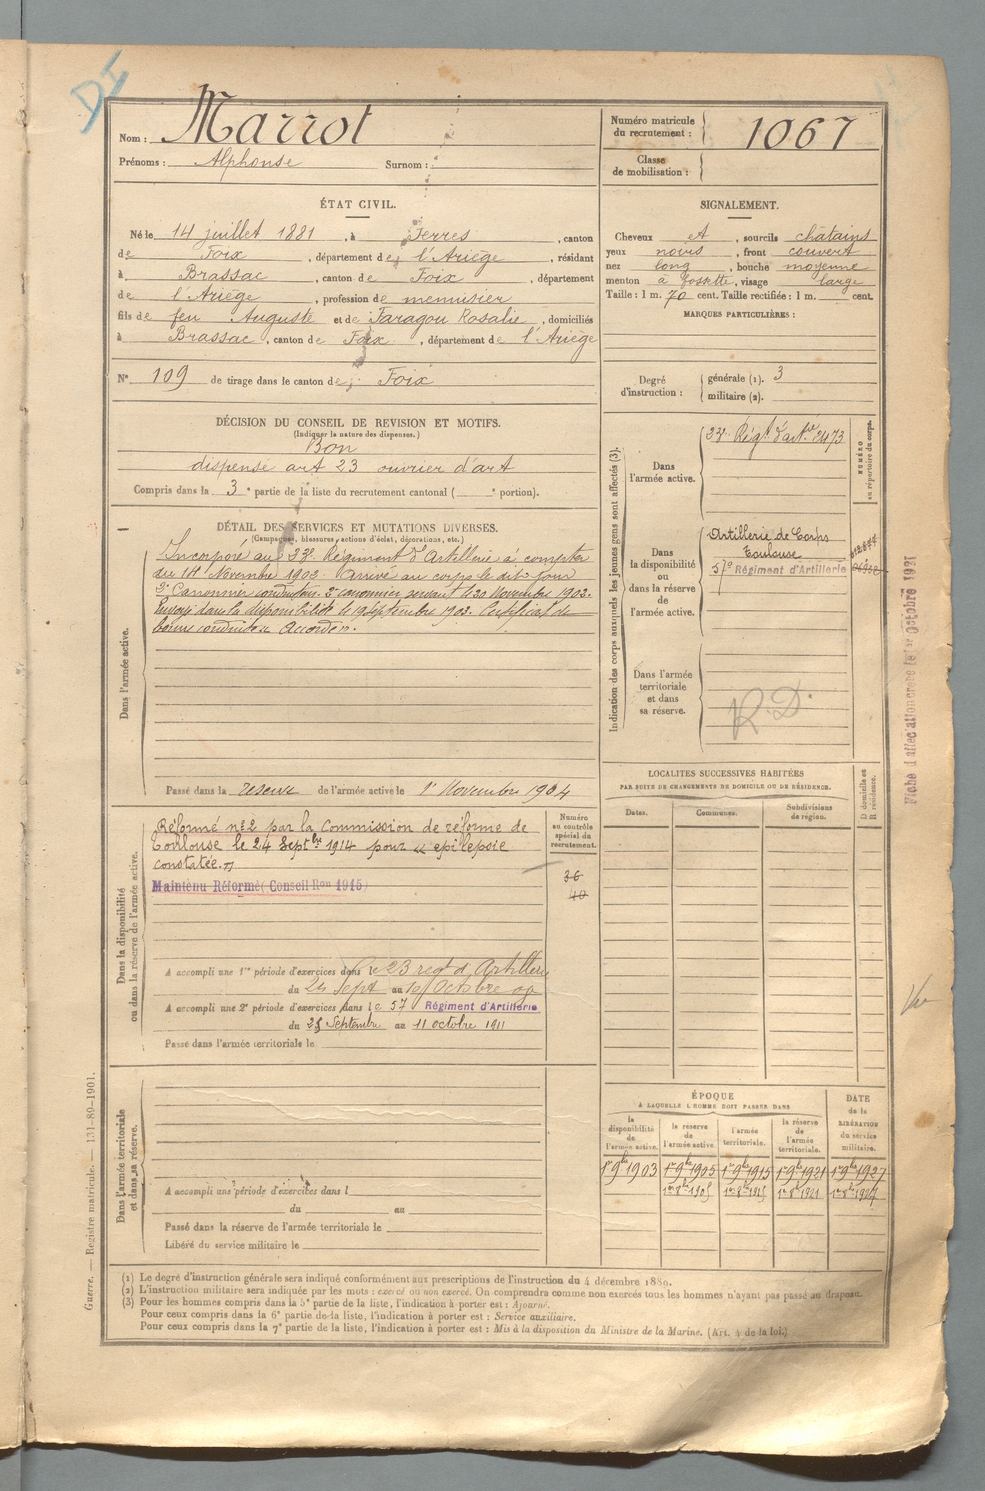 DI
Nom : Marrot
Prénoms : Alphonse Surnom :
Numéro matricule du recrutement : 1067
Classe de mobilisation :
ÉTAT CIVIL.
Né le 14 juillet 1881, à Serres, canton
de Foix, département de l'Ariège, résidant
à Brassac, canton de Foix, département
de l'Ariège, profession de menuisier
fils de feu Auguste et de Faragou Rosalie, domiciliés
à Brassac, canton de Foix, département de l'Ariège
N° 109 de tirage dans le canton de Foix
SIGNALEMENT.
Cheveux et, sourcils châtains
yeux noirs, front couvert
nez long, bouche moyenne
menton à fossette, visage large
Taille : 1 m. 70 cent. Taille rectifiée : 1 m. cent.
MARQUES PARTICULIÈRES :
Degré d'instruction : générale (1). 3
militaire (2).
DÉCISION DU CONSEIL DE REVISION ET MOTIFS.
(Indiquer la nature des dispenses.)
Bon
dispensé art 23 ouvrier d'art
Compris dans la 3e partie de la liste du recrutement cantonal ( e portion).
DÉTAIL DES SERVICES ET MUTATIONS DIVERSES.
(Campagnes, blessures, actions d'éclat, décorations, etc.)
Dans l'armée active.
Incorporé au 23e Régiment d'Artillerie à compter
du 14 Novembre 1902. Arrivé au corps le dit jour
2e Canonnier conducteur. 2e canonnier servant le 20 Novembre 1902.
Envoyé dans la disponibilité le 19 Septembre 1903. Certificat de
bonne conduite Accordé.
Passé dans la réserve de l'armée active le 1er Novembre 1904
Indication des corps auxquels les jeunes gens sont affectés (3).
NUMÉRO au répertoire du corps.
Dans l'armée active.
23e Régt d'artie 2473
Dans la disponibilité ou dans la réserve de l'armée active.
Artillerie de Corps
Toulouse
57e Régiment d'Artillerie
Dans l'armée territoriale et dans sa réserve.
R.D.
Fiche d'affectation créée le 1er Octobre 1921
Dans la disponibilité ou dans la réserve de l'armée active.
Numéro au contrôle spécial du recrutement.
36
40
Réformé n°2 par la Commission de réforme de
Toulouse le 24 Septbre 1914 pour « epilepsie
constatée. »
Maintenu Réformé (Conseil Ron 1915)
A accompli une 1re période d'exercices dans le 23 regt d'Artillerie
du Sept au Octobre 09
A accompli une 2e période d'exercices dans le 57 Régiment d'Artillerie
du 25 Septembre au 11 octobre 1911
Passé dans l'armée territoriale le
LOCALITES SUCCESSIVES HABITÉES
PAR SUITE DE CHANGEMENTS DE DOMICILE OU DE RÉSIDENCE.
Dates. Communes. Subdivisions de région. D domicile ou R résidence.
Dans l'armée territoriale et dans sa réserve.
A accompli une période d'exercices dans l
du au
Passé dans la réserve de l'armée territoriale le
Libéré du service militaire le
ÉPOQUE
A LAQUELLE L'HOMME DOIT PASSER DANS
la disponibilité de l'armée active. la réserve de l'armée active. l'armée territoriale. la réserve de l'armée territoriale.
DATE de la LIBÉRATION du service militaire.
1er 9bre 1903 1er 9bre 1905 1er 9bre 1915 1er 9bre 1921 1er 9bre 1927
1er 8bre 1905 1er 8bre 1915 1er 8bre 1921 1er 8bre 1927
(1) Le degré d'instruction générale sera indiqué conformément aux prescriptions de l'instruction du 4 décembre 1889.
(2) L'instruction militaire sera indiquée par les mots : exercé ou non exercé. On comprendra comme non exercés tous les hommes n'ayant pas passé au drapeau.
(3) Pour les hommes compris dans la 5e partie de la liste, l'indication à porter est : Ajourné.
Pour ceux compris dans la 6e partie de la liste, l'indication à porter est : Service auxiliaire.
Pour ceux compris dans la 7e partie de la liste, l'indication à porter est : Mis à la disposition du Ministre de la Marine. (Art. 4 de la loi.)
Guerre. — Registre matricule. — 131-89-1901.